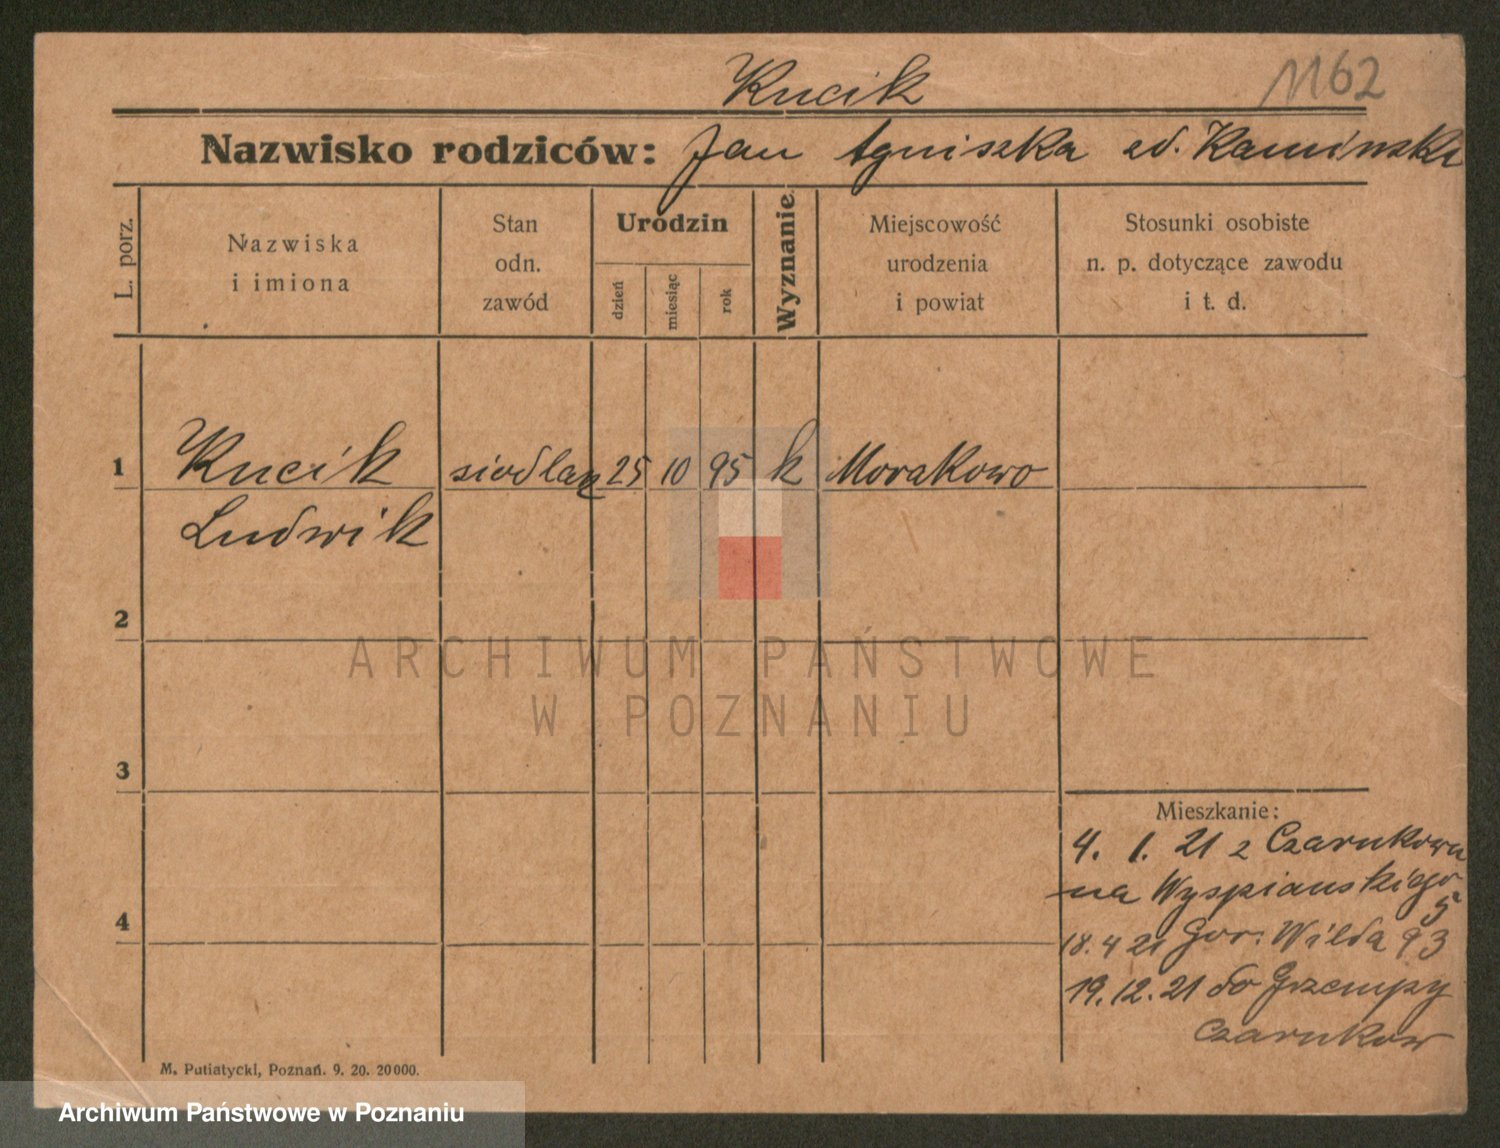 Kucik 1162
Nazwisko rodziców: Jan Agniszka zd. Kamińska
L. porz.
Nazwiska
i imiona
Stan
odn.
zawód
Urodzin
dzień
miesiąc
rok
Wyznanie
Miejscowość
urodzenia
i powiat
Stosunki osobiste
n. p. dotyczące zawodu
i t. d.
1 Kucik siodlarz 25 10 95 k Morakowo
Ludwik
2
ARCHIWUM PAŃSTWOWE
W POZNANIU
3
Mieszkanie:
4. 1. 21 z Czarnkowa
na Wyspianskiego
5
4
18. 4 21 Gor. Wilda 93
19. 12. 21 do Grzempy
Czarnkow
M. Putiatycki, Poznań. 9. 20. 20000.
Archiwum Państwowe w Poznaniu